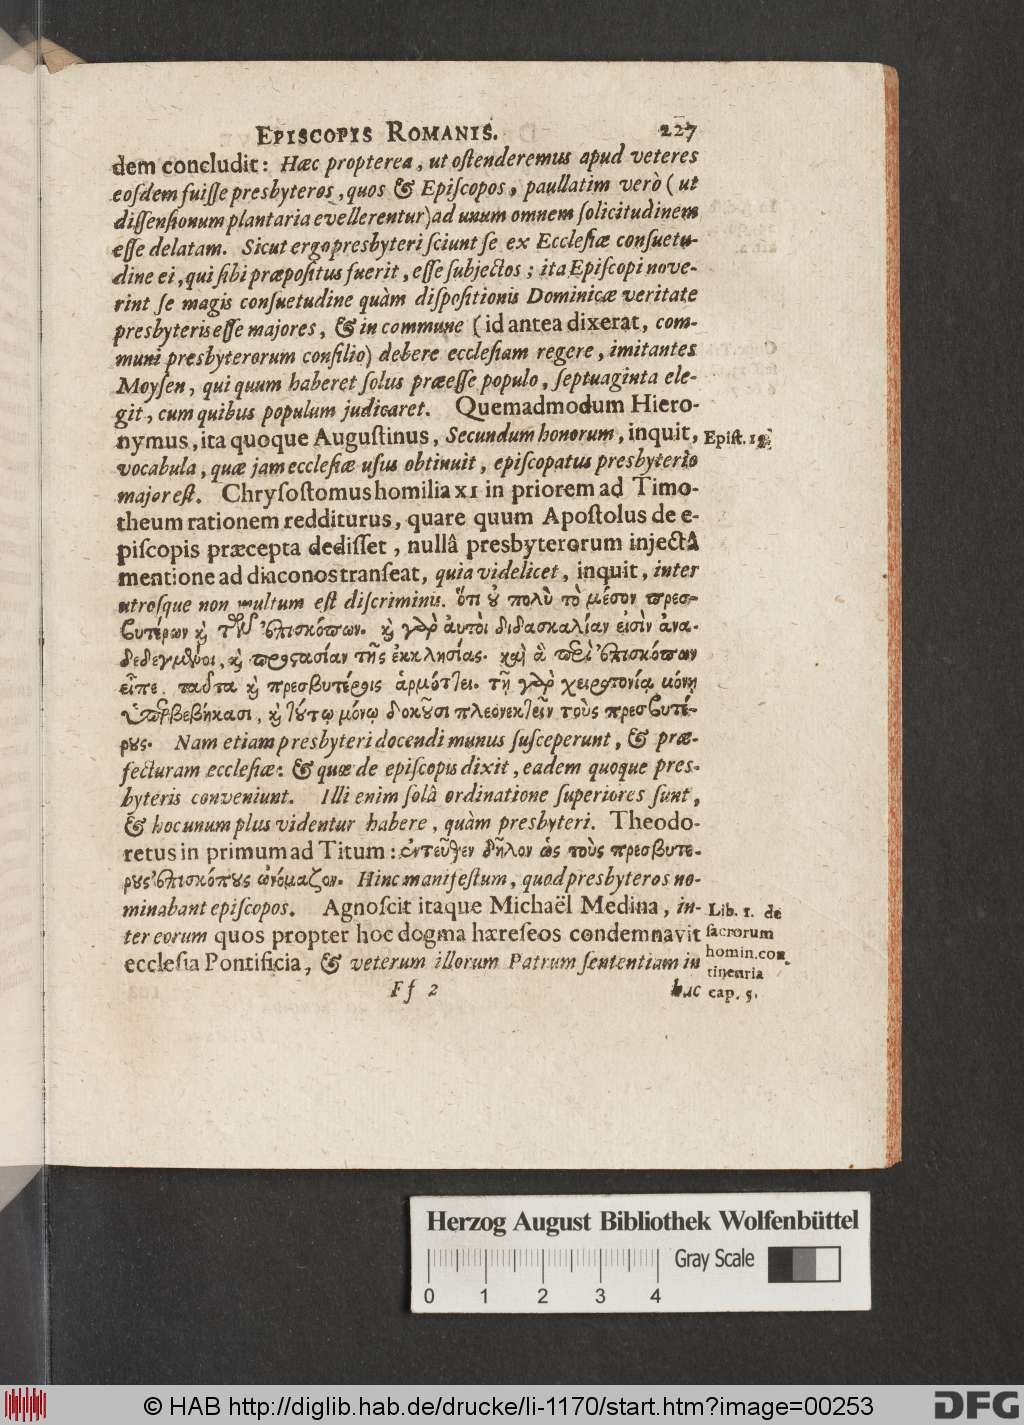 EPISCOPIS ROMANIS. 227
dem concludit: Hæc propterea, ut oſtenderemus apud veteres
eoſdem fuiſſe presbyteros, quos & Epiſcopos, paullatim verò (ut
diſſenſionum plantaria evellerentur) ad unum omnem ſolicitudinem
eſſe delatam. Sicut ergo presbyteri ſciunt ſe ex Eccleſiæ conſuetu-
dine ei, qui ſibi præpoſitus fuerit, eſſe ſubjectos; ita Epiſcopi nove-
rint ſe magis conſuetudine quàm diſpoſitionis Dominicæ veritate
presbyteris eſſe majores, & in commune (id antea dixerat, com-
muni presbyterorum conſilio) debere eccleſiam regere, imitantes
Moyſen, qui quum haberet ſolus præeſſe populo, ſeptuaginta ele-
git, cum quibus populum judicaret. Quemadmodum Hiero-
nymus, ita quoque Auguſtinus, Secundum honorum, inquit,
Epiſt. 19.
vocabula, quæ jam eccleſiæ uſus obtinuit, epiſcopatus presbyterio
major eſt. Chryſoſtomus homilia XI in priorem ad Timo-
theum rationem redditurus, quare quum Apoſtolus de e-
piſcopis præcepta dediſſet, nullâ presbyterorum injectâ
mentione ad diaconos tranſeat, quia videlicet, inquit, inter
utroſque non multum eſt diſcriminis. Ὅτι ȣ̓ πολὺ τὸ μέσον πρεσ-
βυτέρων κ̀ τῶν ἐπισκόπων. κ̀ γὰρ αὐτοὶ διδασκαλίαν εἰσὶν ἀνα-
δεδεγμένοι, κ̀ προςασίαν τῆς ἐκκλησίας. καὶ ἃ περὶ ἐπισκόπων
εἶπε, ταῦτα κ̀ πρεσβυτέροις ἁρμόττει. τῇ γὰρ χειροτονίᾳ μόνῃ
ὑπερβεβήκασι, κ̀ τȣ́τῳ μόνῳ δοκȣ͂σι πλεονεκτεῖν τοὺς πρεσβυτέ-
ρȣς. Nam etiam presbyteri docendi munus ſuſceperunt, & præ-
fecturam eccleſiæ: & quæ de epiſcopis dixit, eadem quoque pres-
byteris conveniunt. Illi enim ſolâ ordinatione ſuperiores ſunt,
& hoc unum plus videntur habere, quàm presbyteri. Theodo-
retus in primum ad Titum: ἐντεῦθεν δῆλον ὡς τοὺς πρεσβυτέ-
ρȣς ἐπισκόπȣς ὠνόμαζον. Hinc manifeſtum, quod presbyteros no-
minabant epiſcopos. Agnoſcit itaque Michaël Medina, in-
ter eorum quos propter hoc dogma hæreſeos condemnavit
eccleſia Pontificia, & veterum illorum Patrum ſententiam in
Lib. 1. de
ſacrorum
homin. con
tinentia
cap. 5.
Ff 2 hac
Herzog August Bibliothek Wolfenbüttel
Gray Scale
0 1 2 3 4
© HAB http://diglib.hab.de/drucke/li-1170/start.htm?image=00253
DFG